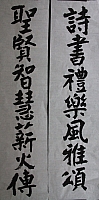 詩書禮樂風雅頌
聖賢智慧薪火傳